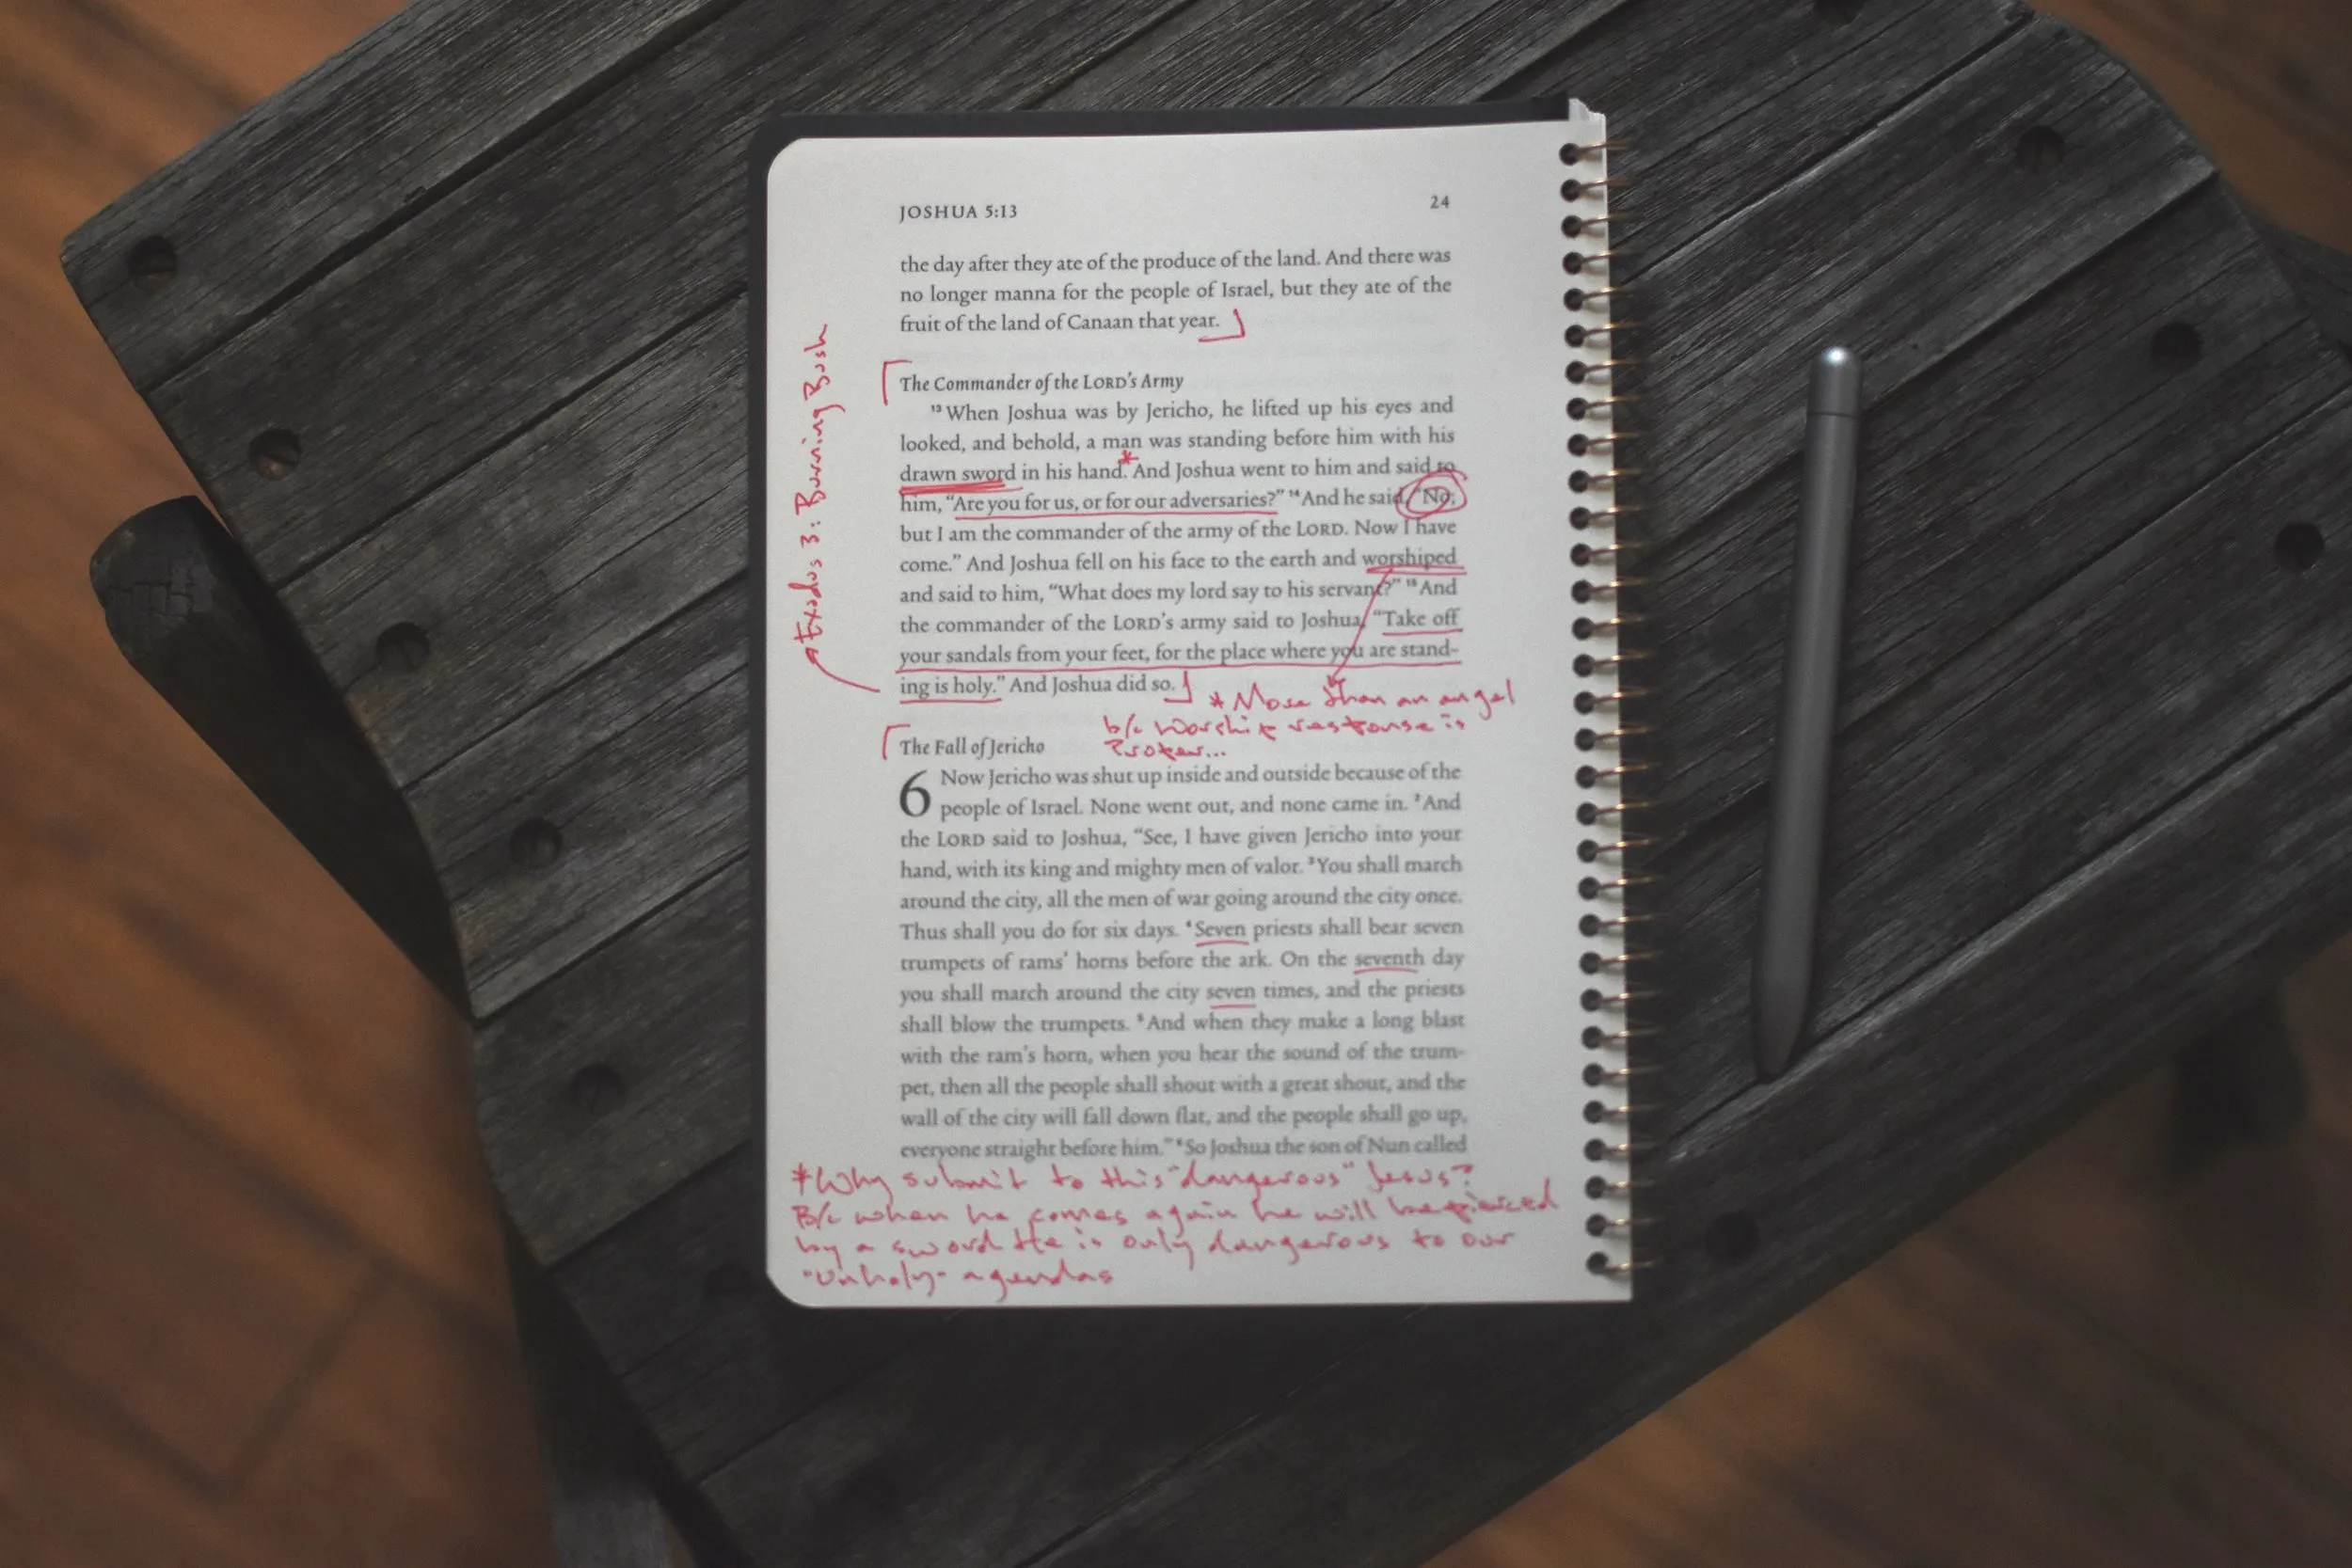 JOSHUA 5:13 24
the day after they ate of the produce of the land. And there was
no longer manna for the people of Israel, but they ate of the
fruit of the land of Canaan that year.
The Commander of the LORD's Army
13 When Joshua was by Jericho, he lifted up his eyes and
looked, and behold, a man was standing before him with his
drawn sword in his hand.* And Joshua went to him and said to
him, “Are you for us, or for our adversaries?” 14 And he said, “No;
but I am the commander of the army of the LORD. Now I have
come.” And Joshua fell on his face to the earth and worshiped
and said to him, “What does my lord say to his servant?” 15 And
the commander of the LORD's army said to Joshua, “Take off
your sandals from your feet, for the place where you are stand-
ing is holy.” And Joshua did so.
Exodus 3: Burning Bush
* More than an angel
b/c worship response is
The Fall of Jericho
6 Now Jericho was shut up inside and outside because of the
people of Israel. None went out, and none came in. 2 And
the LORD said to Joshua, “See, I have given Jericho into your
hand, with its king and mighty men of valor. 3 You shall march
around the city, all the men of war going around the city once.
Thus shall you do for six days. 4 Seven priests shall bear seven
trumpets of rams' horns before the ark. On the seventh day
you shall march around the city seven times, and the priests
shall blow the trumpets. 5 And when they make a long blast
with the ram's horn, when you hear the sound of the trum-
pet, then all the people shall shout with a great shout, and the
wall of the city will fall down flat, and the people shall go up,
everyone straight before him.” 6 So Joshua the son of Nun called
* Why submit to this "dangerous" Jesus?
B/c when he comes again he will be pierced
by a sword He is only dangerous to our
"unholy" agendas